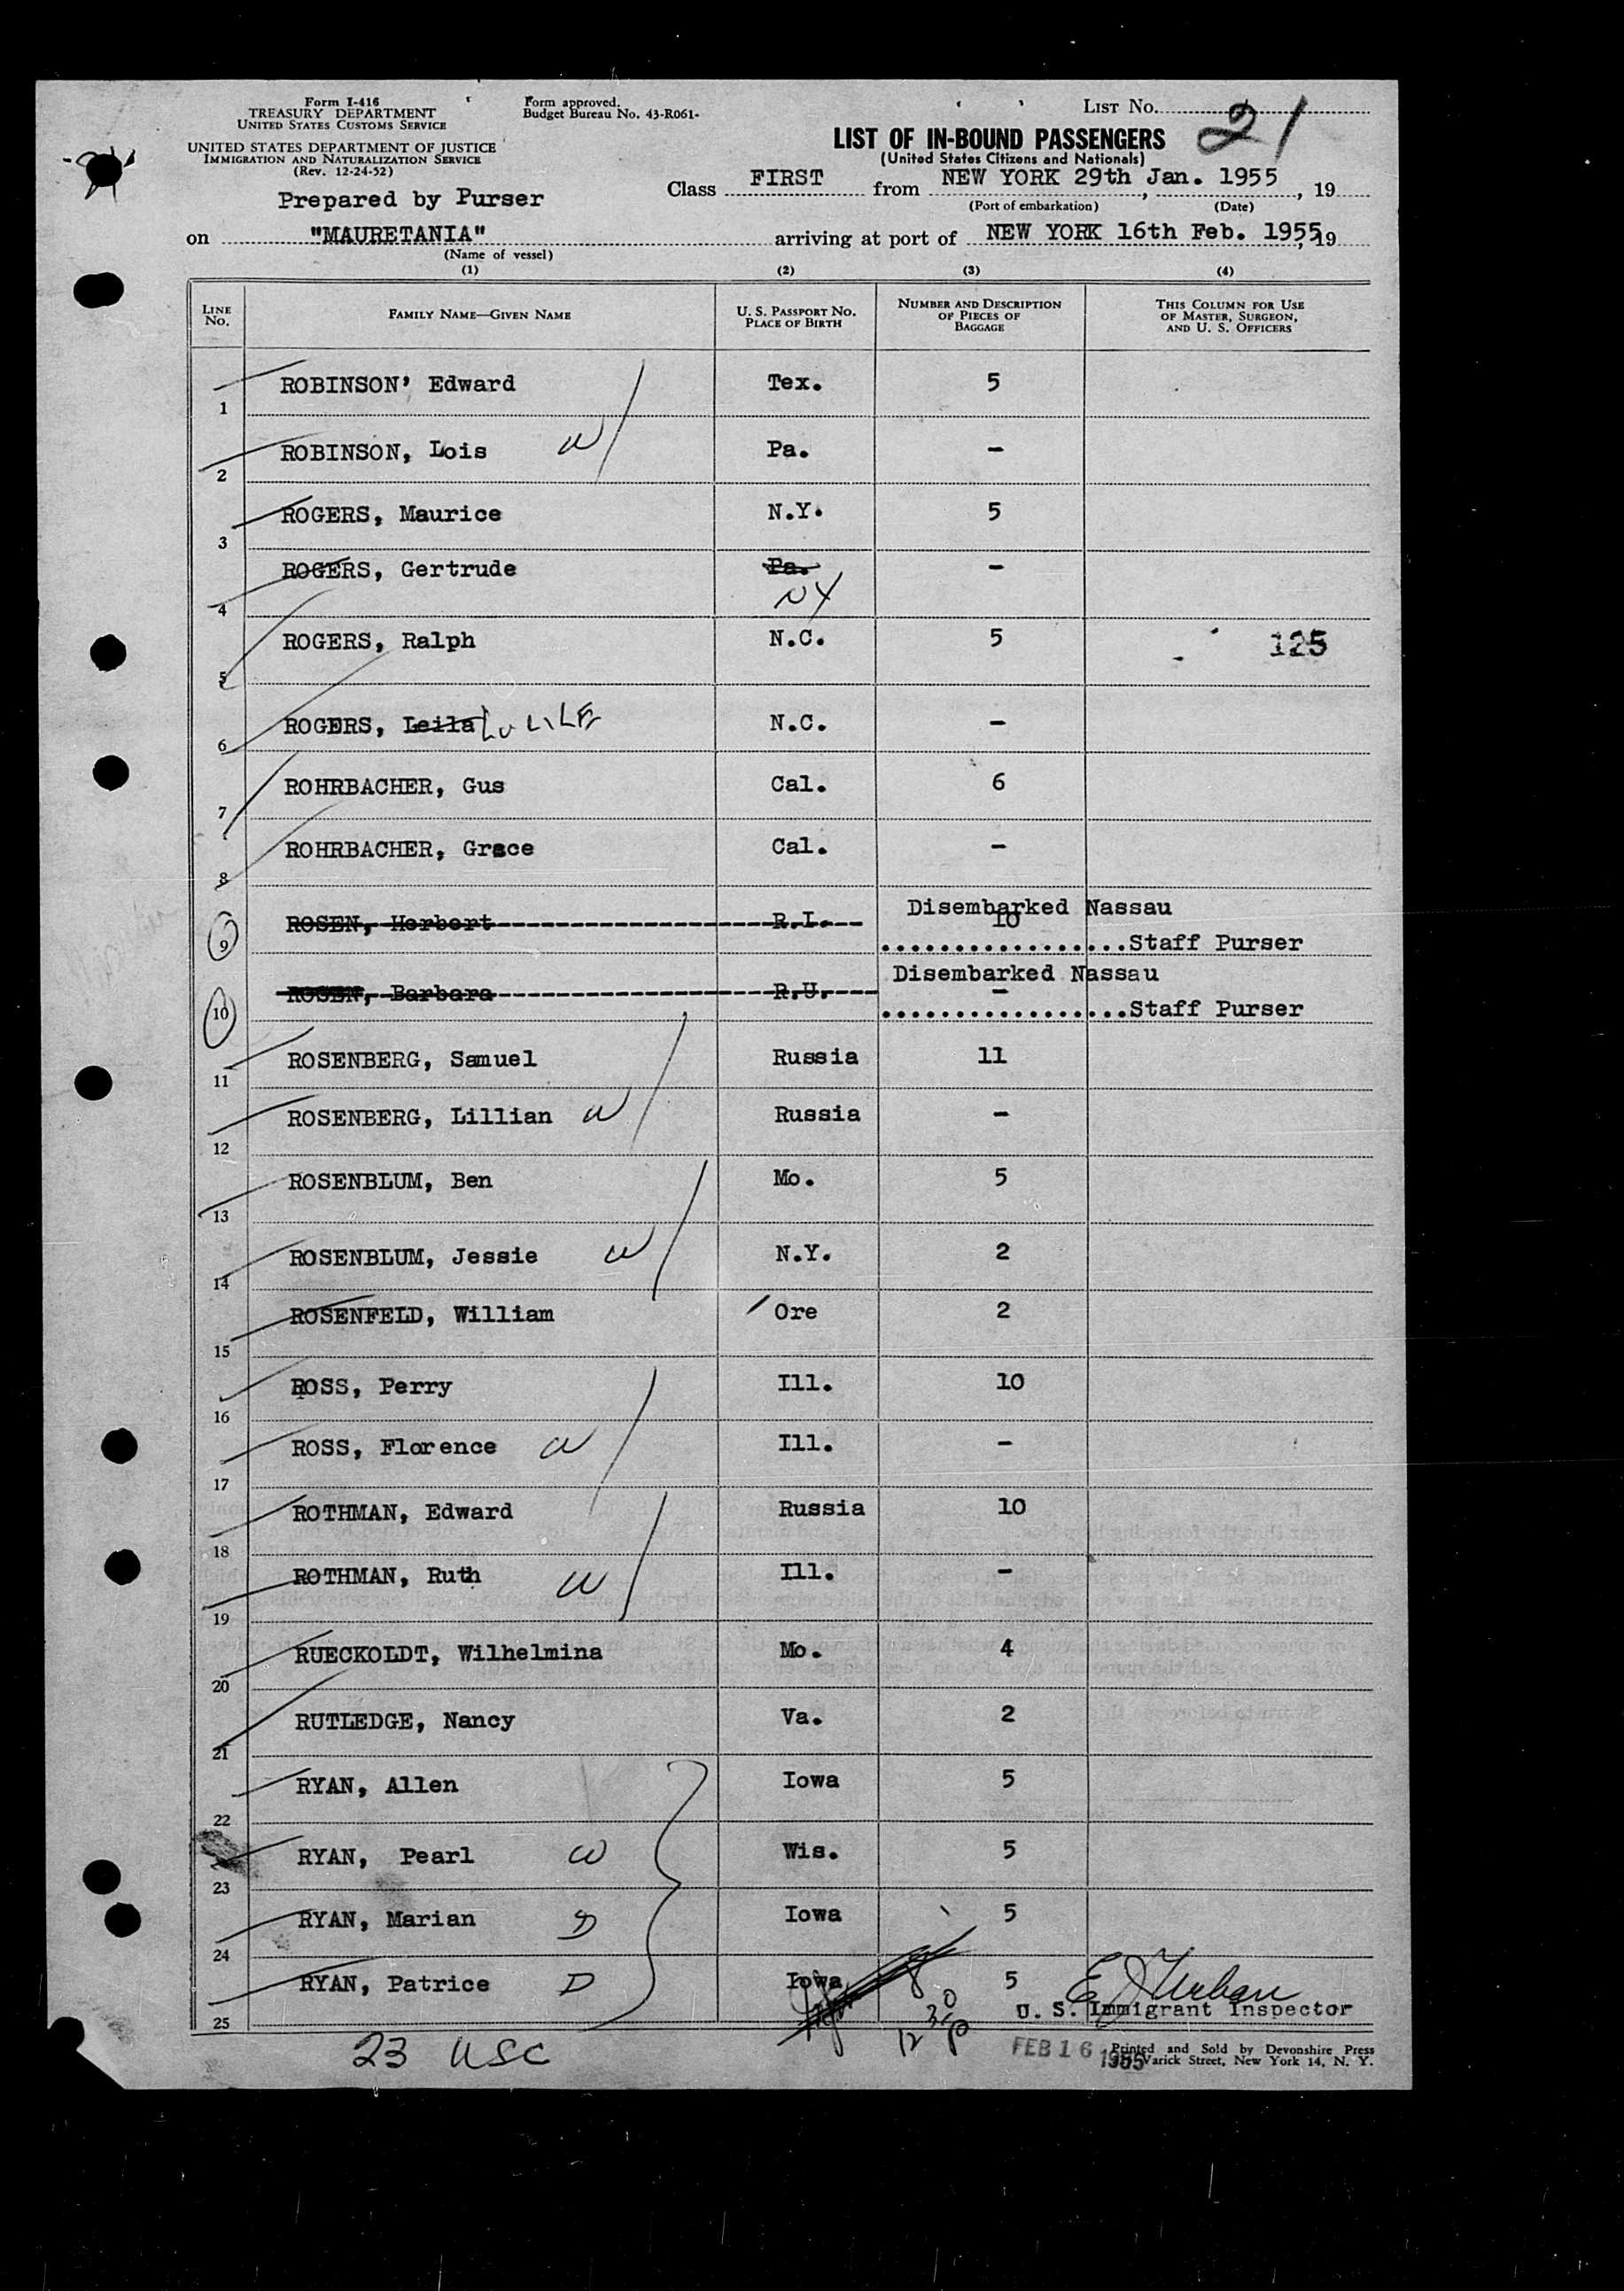 Form I-416
TREASURY DEPARTMENT
UNITED STATES CUSTOMS SERVICE
UNITED STATES DEPARTMENT OF JUSTICE
IMMIGRATION AND NATURALIZATION SERVICE
(Rev. 12-24-52)
Form approved.
Budget Bureau No. 43-R061-
LIST No. 21
LIST OF IN-BOUND PASSENGERS
(United States Citizens and Nationals)
Prepared by Purser
Class FIRST from NEW YORK 29th Jan. 1955, 19
(Port of embarkation) (Date)
on "MAURETANIA" arriving at port of NEW YORK 16th Feb. 1955, 19
(Name of vessel)
(1) (2) (3) (4)
LINE No. FAMILY NAME—GIVEN NAME U. S. PASSPORT No. PLACE OF BIRTH NUMBER AND DESCRIPTION OF PIECES OF BAGGAGE THIS COLUMN FOR USE OF MASTER, SURGEON, AND U. S. OFFICERS
1 ROBINSON' Edward Tex. 5
2 ROBINSON, Lois W Pa. -
3 ROGERS, Maurice N.Y. 5
4 ROGERS, Gertrude Pa. NY -
5 ROGERS, Ralph N.C. 5 125
6 ROGERS, Leila LULILE N.C. -
7 ROHRBACHER, Gus Cal. 6
8 ROHRBACHER, Grace Cal. -
9 ROSEN, Herbert R.I. 10 Disembarked Nassau
Staff Purser
10 ROSEN, Barbara R.U. - Disembarked Nassau
Staff Purser
11 ROSENBERG, Samuel Russia 11
12 ROSENBERG, Lillian W Russia -
13 ROSENBLUM, Ben Mo. 5
14 ROSENBLUM, Jessie W N.Y. 2
15 ROSENFELD, William Ore 2
16 ROSS, Perry Ill. 10
17 ROSS, Florence W Ill. -
18 ROTHMAN, Edward Russia 10
19 ROTHMAN, Ruth W Ill. -
20 RUECKOLDT, Wilhelmina Mo. 4
21 RUTLEDGE, Nancy Va. 2
22 RYAN, Allen Iowa 5
23 RYAN, Pearl W Wis. 5
24 RYAN, Marian D Iowa 5
25 RYAN, Patrice D Iowa 5
U. S. Immigrant Inspector
23 USC
FEB 16 1955
Printed and Sold by Devonshire Press
Varick Street, New York 14, N. Y.